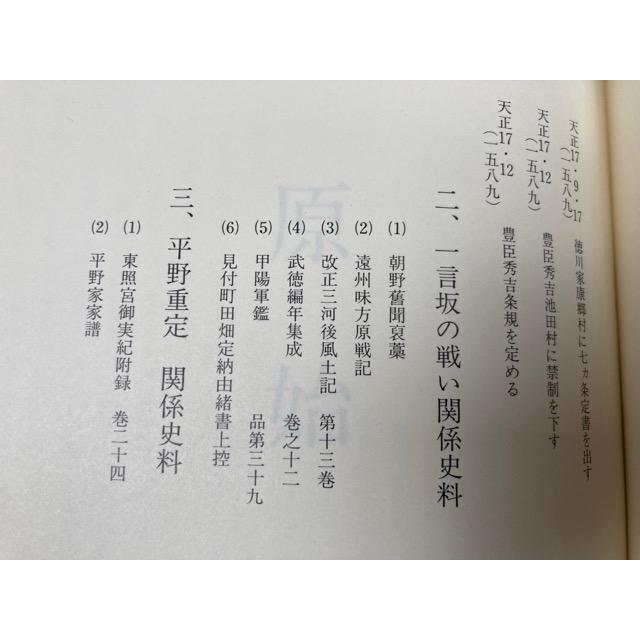 天正17・9・17 徳川家康郷村に七ヵ条定書を出す
(一五八九)
天正17・12 豊臣秀吉池田村に禁制を下す
(一五八九)
天正17・12 豊臣秀吉条規を定める
(一五八九)
二、一言坂の戦い関係史料
(1) 朝野舊聞裒藁
(2) 遠州味方原戦記
(3) 改正三河後風土記 第十三巻
(4) 武徳編年集成 巻之十二
(5) 甲陽軍鑑 品第三十九
(6) 見付町田畑定納由緒書上控
三、平野重定 関係史料
(1) 東照宮御実紀附録 巻二十四
(2) 平野家家譜
原始